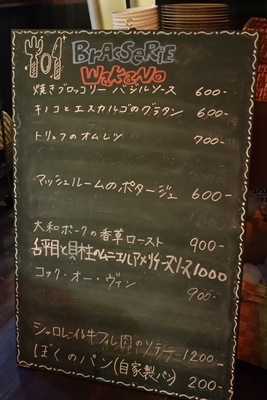 BRASSERIE
WaKaNo
焼きブロッコリー バジルソース 600-
キノコとエスカルゴのグラタン 600-
トリュフのオムレツ 700-
マッシュルームのポタージュ 600-
大和ポークの香草ロースト 900-
と貝柱のムニエルアメリケーヌソース1000
コック・オー・ヴァン 900-
シャロレー牛フィレ肉のソテー 1200-
ぼくのパン(自家製パン) 200-